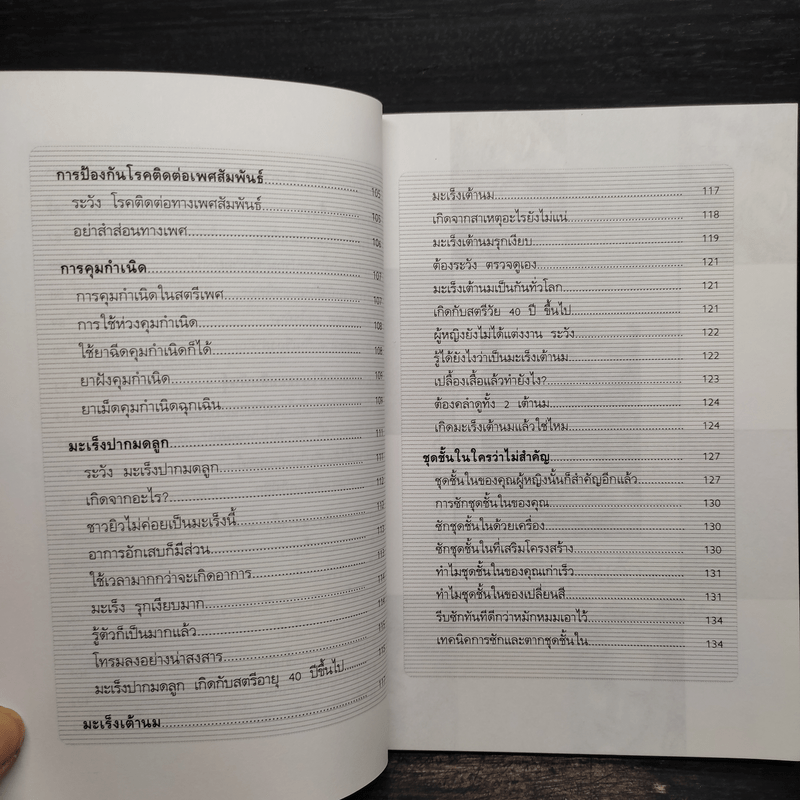 การป้องกันโรคติดต่อเพศสัมพันธ์ 105
ระวัง โรคติดต่อทางเพศสัมพันธ์ 105
อย่าสำส่อนทางเพศ 106
การคุมกำเนิด 107
การคุมกำเนิดในสตรีเพศ 107
การใช้ห่วงคุมกำเนิด 108
ใช้ยาฉีดคุมกำเนิดก็ได้ 108
ยาฝังคุมกำเนิด 109
ยาเม็ดคุมกำเนิดฉุกเฉิน 109
มะเร็งปากมดลูก 111
ระวัง มะเร็งปากมดลูก 111
เกิดจากอะไร? 112
ชาวยิวไม่ค่อยเป็นมะเร็งนี้ 112
อาการอักเสบก็มีส่วน 113
ใช้เวลามากกว่าจะเกิดอาการ 114
มะเร็ง รุกเงียบมาก 114
รู้ตัวก็เป็นมากแล้ว 115
โทรมลงอย่างน่าสงสาร 115
มะเร็งปากมดลูก เกิดกับสตรีอายุ 40 ปีขึ้นไป
มะเร็งเต้านม 117
มะเร็งเต้านม 117
เกิดจากสาเหตุอะไรยังไม่แน่ 118
มะเร็งเต้านมรุกเงียบ 119
ต้องระวัง ตรวจดูเอง 121
มะเร็งเต้านมเป็นกันทั่วโลก 121
เกิดกับสตรีวัย 40 ปี ขึ้นไป 121
ผู้หญิงยังไม่ได้แต่งงาน ระวัง 122
รู้ได้ยังไงว่าเป็นมะเร็งเต้านม 122
เปลื้องเสื้อแล้วทำยังไง? 123
ต้องคลำดูทั้ง 2 เต้านม 124
เกิดมะเร็งเต้านมแล้วใช่ไหม 124
ชุดชั้นในใครว่าไม่สำคัญ 127
ชุดชั้นในของคุณผู้หญิงนั้นก็สำคัญอีกแล้ว 127
การซักชุดชั้นในของคุณ 130
ซักชุดชั้นในด้วยเครื่อง 130
ซักชุดชั้นในที่เสริมโครงสร้าง 130
ทำไมชุดชั้นในของคุณเก่าเร็ว 131
ทำไมชุดชั้นในของเปลี่ยนสี 131
รีบซักทันทีดีกว่าหมักหมมเอาไว้ 134
เทคนิคการซักและตากชุดชั้นใน 134